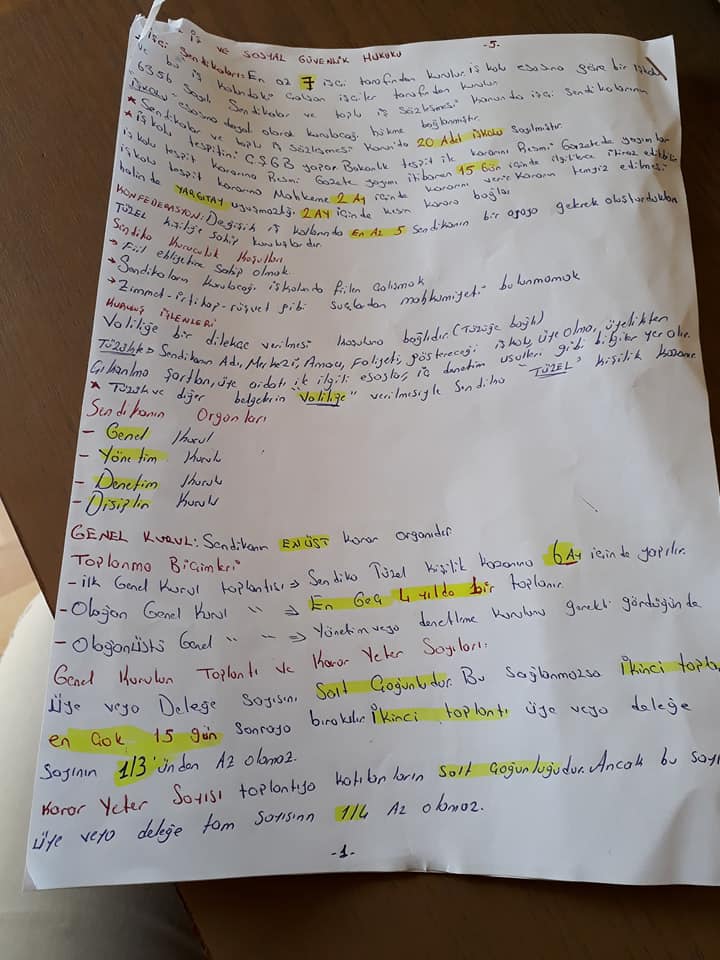 İŞ VE SOSYAL GÜVENLİK HUKUKU -5-
İşçi Sendikaları: En az 7 işçi tarafından kurulur. İş kolu esasına göre bir işkolu
ve bu iş kolundaki çalışan işçiler tarafından kurulur.
6356 Sayılı Sendikalar ve toplu iş Sözleşmesi Kanunda işçi Sendikalarının
İşkolu esasına dayalı olarak kurulacağı hükme bağlanmıştır.
* Sendikalar ve toplu iş Sözleşmesi Kanun'da 20 Adet işkolu Sayılmıştır.
* İşkolu tespitini ÇSGB yapar. Bakanlık tespit ile kararını Resmi Gazetede yayımlar
işkolu tespit kararına Resmi Gazete yayımı itibaren 15 Gün içinde ilgililerce itiraz edilebilir
işkolu tespit kararına Mahkeme 2 Ay içinde kararını verir. Kararın temyiz edilmesi
halinde YARGITAY uyuşmazlığı 2 AY içinde kesin karara bağlar
KONFEDERASYON: Değişik iş kollarında En Az 5 Sendikanın bir araya gelerek oluşturdukları
Tüzel kişiliğe sahip kuruluşlardır.
Sendika Kuruculuk Koşulları
→ Fiil ehliyetine Sahip olmak.
→ Sendikaların kurulacağı işkolunda fiilen Çalışmak
→ Zimmet-irtikap-rüşvet gibi Suçlardan mahkumiyeti bulunmamak
KURULUŞ İŞLEMLERİ
Valiliğe bir dilekçe verilmesi koşuluna bağlıdır. (Tüzüğe bağlı)
Tüzükte → Sendikanın Adı, Merkezi, Amacı, Faliyeti, göstereceği işkolu, üye olma, üyelikten
Çıkarılma şartları, üye aidatı ile ilgili esaslar, iç denetim usulleri gibi bilgiler yer alır.
* Tüzük ve diğer belgelerin Valiliğe" verilmesiyle Sendika "TÜZEL" kişilik kazanır
Sendikanın Organları
- Genel Kurul
- Yönetim Kurulu
- Denetim Kurulu
- Disiplin Kurulu
GENEL KURUL: Sendikanın EN ÜST karar organıdır
Toplanma Biçimleri
- ilk Genel Kurul toplantısı ⇒ Sendika Tüzel kişilik kazanma 6 Ay içinde yapılır.
- Olağan Genel Kurul " ⇒ En Geç 4 yılda bir toplanır.
- Olağanüstü Genel " " ⇒ Yönetim veya denetleme kurulunu gerekli gördüğünde
Genel Kurulun Toplantı ve Karar Yeter Sayıları:
Üye veya Delege Sayısını Salt Çoğunludur. Bu Sağlanmazsa İkinci topla
en Çok 15 gün sonraya bırakılır. İkinci toplantı üye veya delege
Sayının 1/3'ünden Az olamaz.
Karar Yeter Sayısı toplantıya katılanların Salt Çoğunluğudur. Ancak bu sayı
üye veya delege tam sayısının 1/4 Az olamaz.
-1-